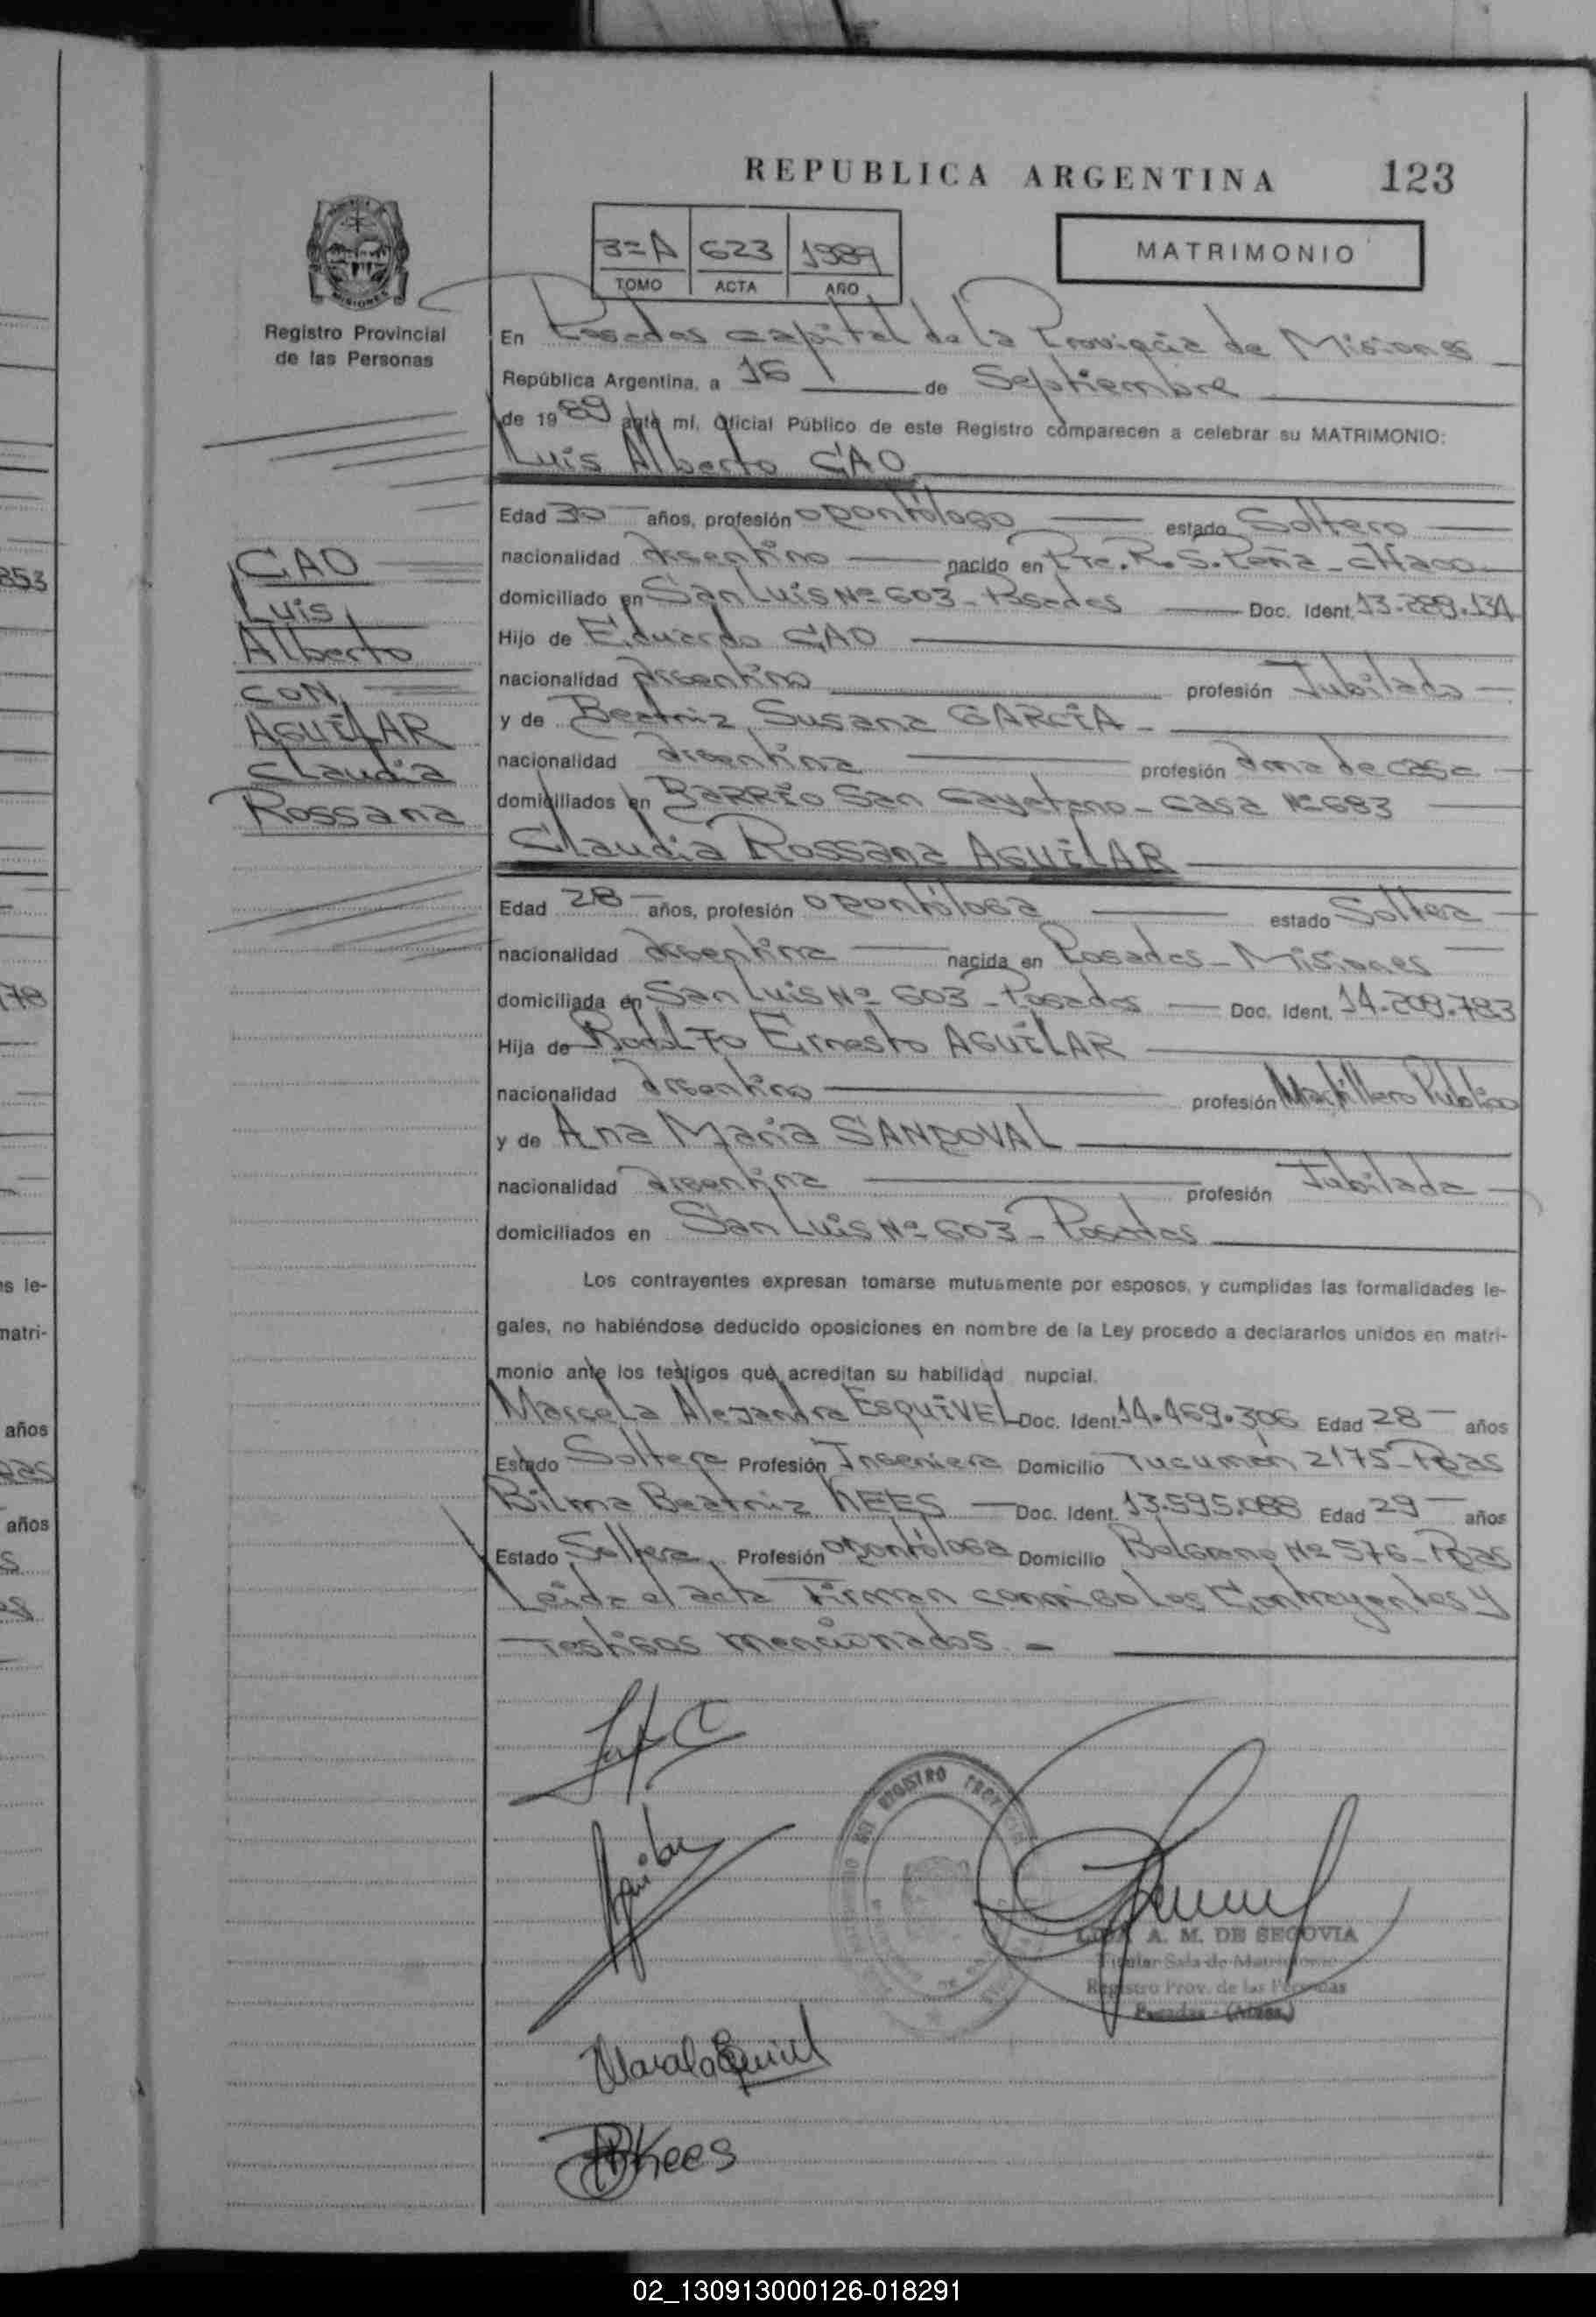 REPUBLICA ARGENTINA 123
3=A 623 1989
TOMO ACTA AÑO
MATRIMONIO
MISIONES
Registro Provincial
de las Personas
En Posadas capital de la Provincia de Misiones
República Argentina, a 16 de Septiembre
de 1989 ante mí, Oficial Público de este Registro comparecen a celebrar su MATRIMONIO:
Luis Alberto CAO
Edad 30 años, profesión Odontólogo estado Soltero
nacionalidad Argentino nacido en Pte. R. S. Peña - CHaco
domiciliado en San Luis Nº 603 - Posadas Doc. Ident. 13.289.134
Hijo de Eduardo CAO
nacionalidad Argentino profesión Jubilado
y de Beatriz Susana GARCIA -
nacionalidad Argentina profesión Ama de casa
domiciliados en BARRIO San Cayetano - Casa Nº 683
Claudia Rossana AGUILAR
Edad 28 años, profesión Odontóloga estado Soltera
nacionalidad Argentina nacida en Posadas - Misiones
domiciliada en San Luis Nº 603 - Posadas Doc. Ident. 14.209.783
Hija de Rodolfo Ernesto AGUILAR
nacionalidad Argentino profesión Martillero Público
y de Ana Maria SANDOVAL
nacionalidad Argentina profesión Jubilada
domiciliados en San Luis Nº 603 - Posadas
Los contrayentes expresan tomarse mutuamente por esposos, y cumplidas las formalidades le-
gales, no habiéndose deducido oposiciones en nombre de la Ley procedo a declararlos unidos en matri-
monio ante los testigos que acreditan su habilidad nupcial.
Marcela Alejandra ESQUIVEL Doc. Ident. 14.469.306 Edad 28 años
Estado Soltera Profesión Ingeniera Domicilio Tucumán 2175 - Pdas
Bilma Beatriz KEES Doc. Ident. 13.595.088 Edad 29 años
Estado Soltera Profesión Odontóloga Domicilio Belgrano Nº 576 - Pdas
Leida el acta Firman conmigo Los Contrayentes y
Testigos mencionados. -
CAO
Luis
Alberto
CON
AGUILAR
Claudia
Rossana
Aguilar
REGISTRO
A. M. DE SEGOVIA
Titular Sala de Matrimonio
Registro Prov. de las Personas
Posadas - (Mnes.)
Marcela Esquivel
BKees
853
78
es le-
matri-
años
años
02_130913000126-018291